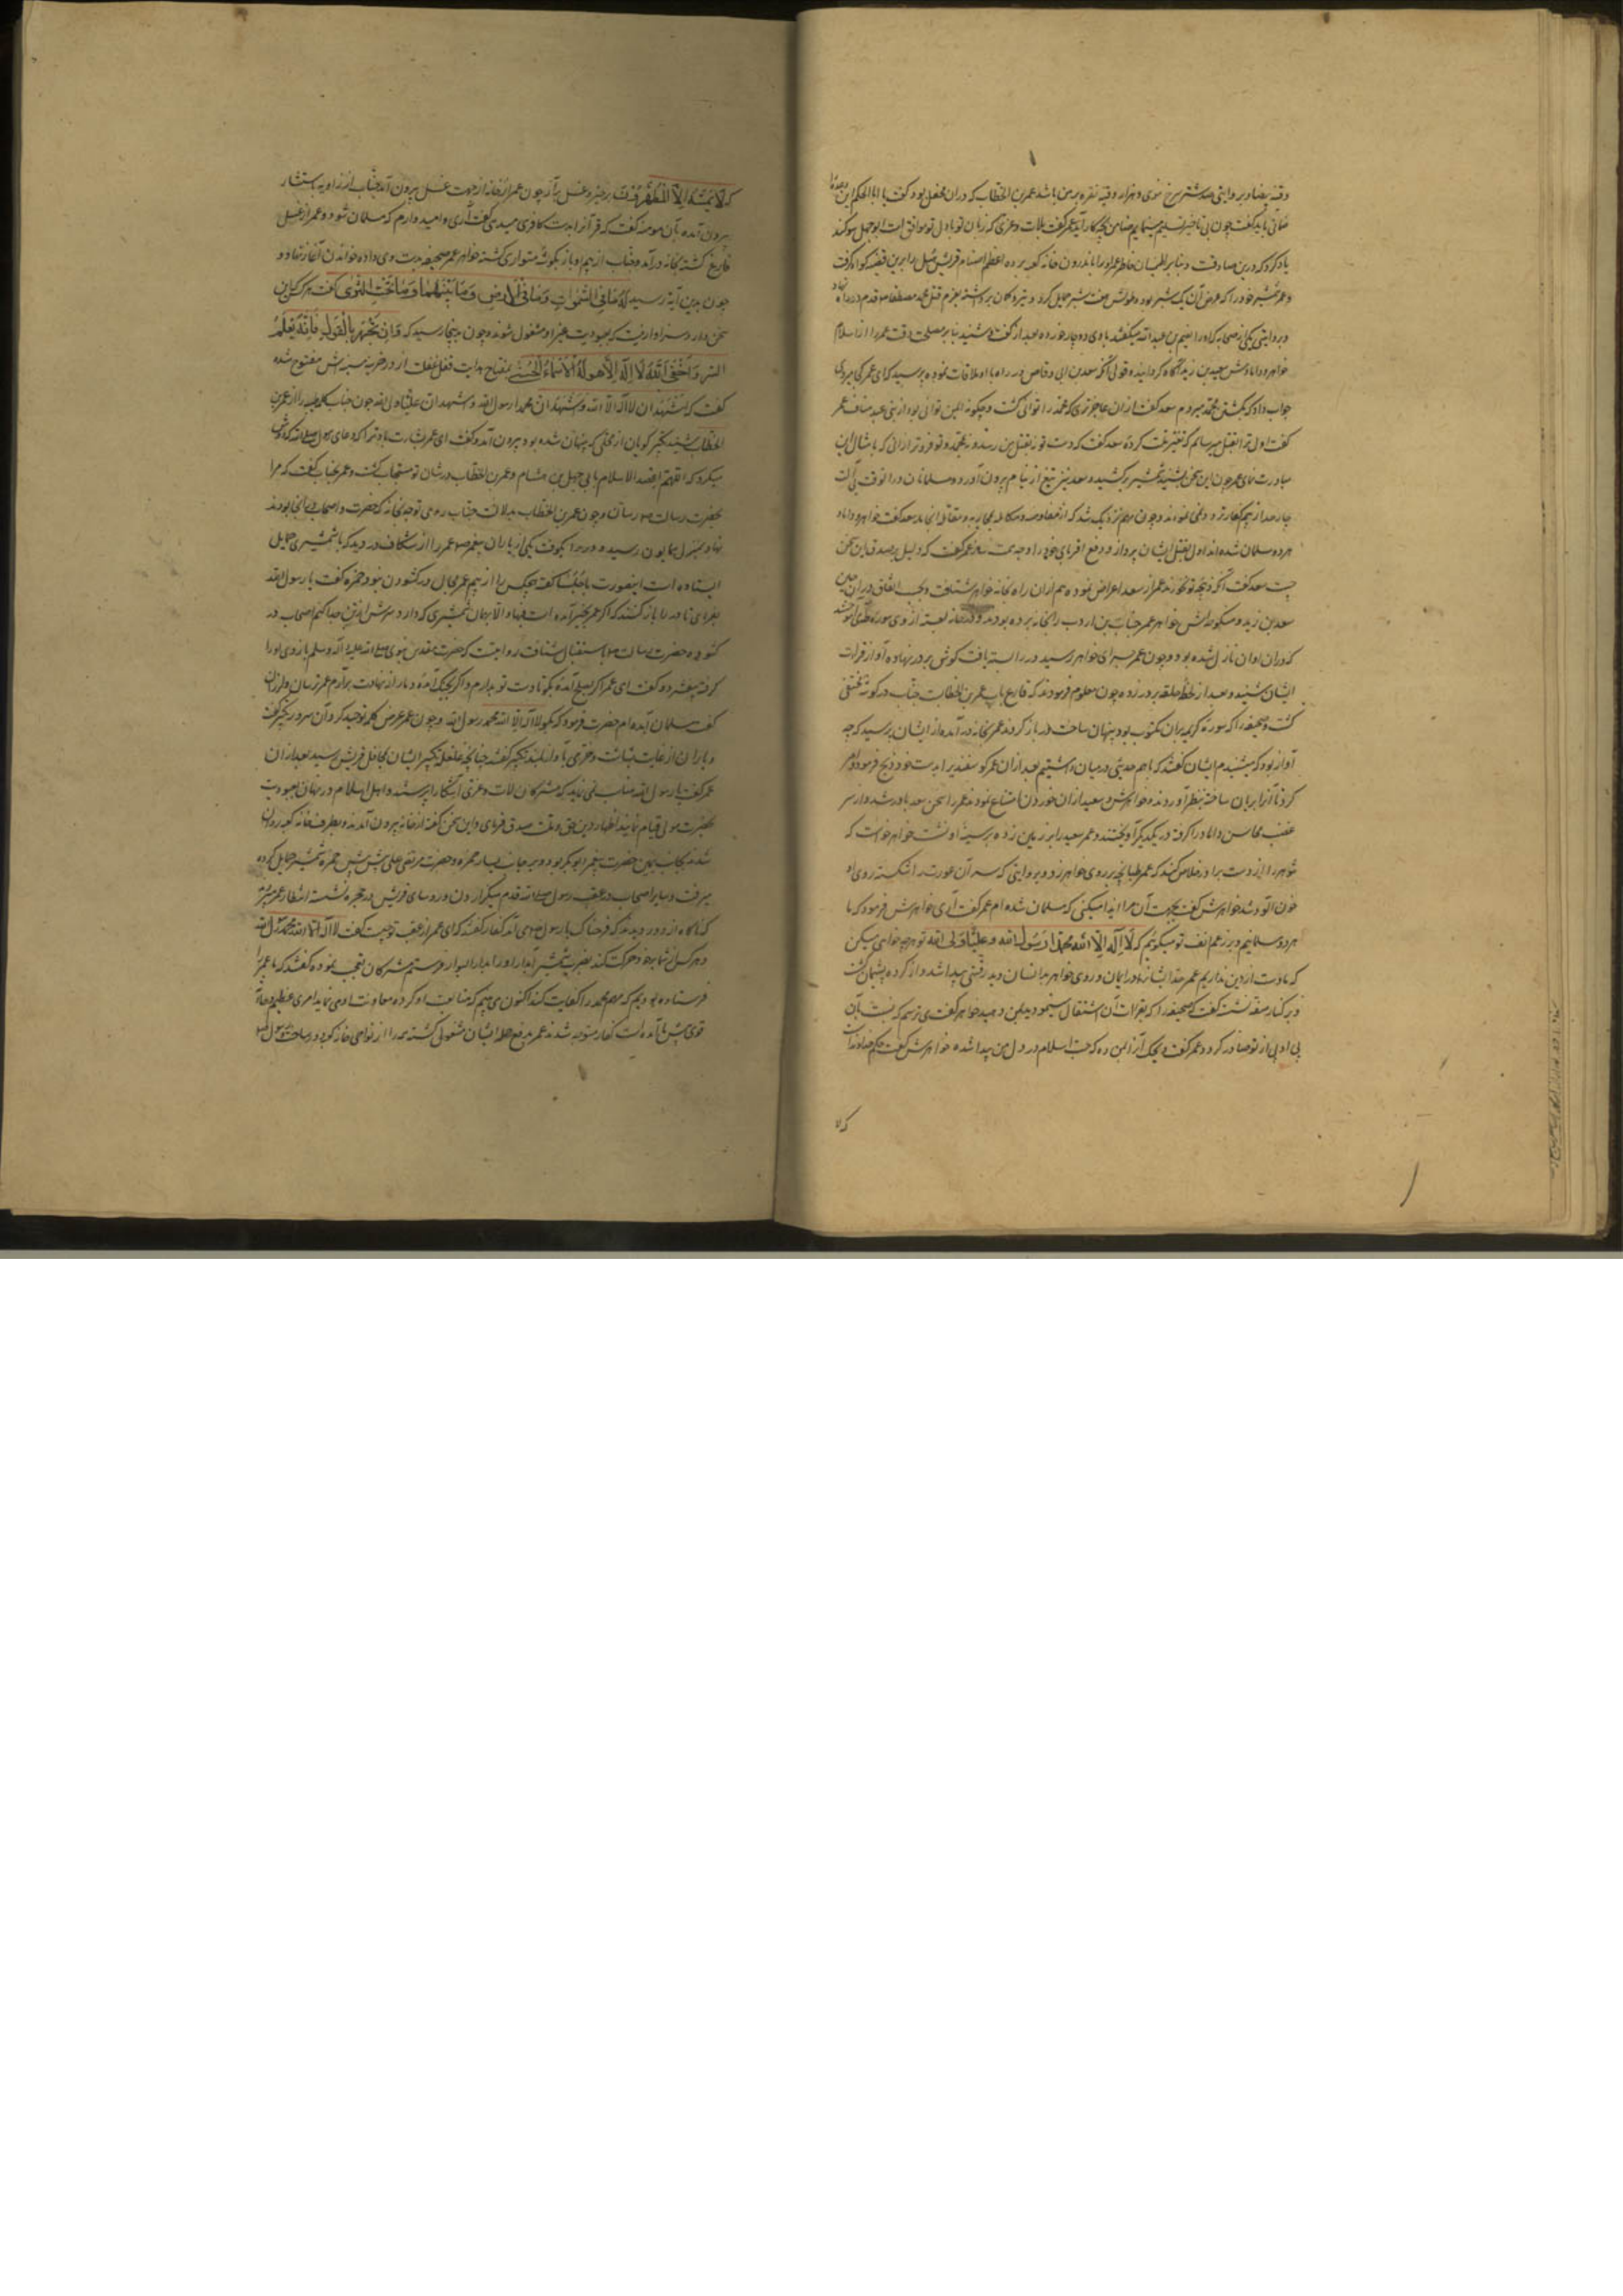 وقیه بیضا و بروایتی صد شتر سرخ موی و هزار وقیه نقره بر من باشد عمر بن الخطاب که دران محفل بود گفت یا ابا الحکم این وعده را
ضمانی باید گفت چون بی تاخیر تسلیم مینمایم ضامن بچه کار آید عمر گفت بلات و عزی که زبان تو با دل تو موافق است ابوجهل سوگند
یاد کرد که درین صادقست و بنا بر اطمینان خاطر عمر او را باندرون خانه کعبه برده اعظم اصنام قریش هبل را برین قضیه گواه گرفت
و عمر شمشیر خود را که عرض آن یک شبر بود و طولش هفت شبر حمایل کرد و تیر و کمان برداشته بعزم قتل محمد مصطفی قدم در راه نهاد
و بروایتی یکی از صحابه که او را نعیم بن عبد الله میگفتند با وی دوچار خورده بعد از گفت و شنید بنا بر مصلحت وقت عمر را از اسلام
خواهر و دامادش سعید بن زید آگاه گردانید و قولی آنکه سعد بن ابی وقاص در راه با او ملاقات نموده پرسید که ای عمر کجا میروی
جواب داد که بکشتن محمد میروم سعد گفت تو ازان عاجزتری که محمد را توانی کشت و چگونه ایمن توانی بود از بنی عبد مناف عمر
گفت اول ترا بقتل میرسانم که تغییر ملت کرده سعد گفت که دست تو بقتل من نرسد و نه بمحمد و تو فروتر ازانی که بامثال این
مبادرت نمای عمر چون این سخن شنید شمشیر برکشید و سعد نیز تیغ از نیام برون آورد و مسلمانان دران وقت بی آلت
چار صد از بیم کفار تردد نمی نمودند و چون مهم نزدیک شد که از مفاوضه و مکالمه بمحاربه و مقاتله انجامد سعد گفت خواهر و داماد
هر دو مسلمان شده اند اول بقتل ایشان پرداز و دفع اقربای خود را وجهه همت ساز عمر گفت که دلیل بر صدق این سخن
چیست سعد گفت آنکه ذبیحه تو نخورند عمر از سعد اعراض نموده هم ازان راه بخانه خواهر شتافت و بحسب اتفاق دران حین
سعید بن زید و منکوحه اش خواهر عمر خباب بن ارت را بخانه برده بودند و در خانه بسته از وی سوره طه می آموختند
که دران اوان نازل شده بود و چون عمر بسرای خواهر رسید در را بسته یافت گوش بر در نهاده آواز قرائت
ایشان شنید و بعد از لحظه حلقه بر در زد و چون معلوم فرمودند که قارع باب عمر بن الخطابست خباب در گوشه مختفی
گشت و صحیفه را که سوره کریمه بران مکتوب بود پنهان ساخت در باز کردند عمر بخانه در آمده از ایشان پرسید که چه
آواز بود که میشنیدم ایشان گفتند که باهم حدیثی درمیان داشتیم بعد ازان عمر گوسفندی را بدست خود ذبح فرمود و امر
کرد تا آنرا بریان ساخته بنظر آوردند و خواهرش و سعید ازان خوردن امتناع نمودند عمر را سخن سعد باور شد و از سر
غضب محاسن داماد را گرفته در یکدیگر آویختند و عمر سعید را بر زمین زده بر سینه او نشست خواهر خواست که
شوهر را از دست برادر خلاص کند که عمر طپانچه بر روی خواهر زد و بروایتی که سر آن عورت را شکسته روی او
خون آلود شد خواهرش گفت بجهت آن مرا ایذا میکنی که مسلمان شده ام عمر گفت آری خواهرش فرمود که ما
هر دو مسلمانیم و بر زعم انف تو میگوئیم که لا اله الا الله محمدا رسول الله و علیا ولی الله تو هرچه خواهی میکن
که ما دست ازین دین نداریم عمر چون ایشانرا در ایمان و روی خواهر بدانسان دید رقتی پیدا شد و از کرده پشیمان گشت
و بر کنار صفه نشست گفت که صحیفه را که بقرائت آن اشتغال مینمودید بمن دهید خواهر گفت می ترسم که نسبت بآن
بی ادبی از تو صادر گردد عمر گفت ویحک آنرا بمن ده که حب اسلام در دل من پیدا شده خواهرش گفت حکم خداوند است
که لا
که لا یمسه الا المطهرون برخیز و غسل برآر چون عمر از خانه از جهت غسل بیرون آمد خباب از زاویه استتار
بیرون آمده بآن مومنه گفت که قرآنرا بدست کافری میدهی گفت آری و امیدوارم که مسلمان شود و عمر از غسل
فارغ گشته بخانه درآمد و خباب از بیم او باز بگوشه متواری گشته خواهر عمر صحیفه بدست وی داده خواندن آغاز نهاد و
چون بدین آیه رسید له ما فی السموات و ما فی الارض و ما بینهما و ما تحت الثری گفت هر که این
سخن دارد سزاوار نیست که بعبودیت غیر او مشغول شوند و چون بدینجا رسید که و ان تجهر بالقول فانه یعلم
السر و اخفی الله لا اله الا هو له الاسماء الحسنی بمفتاح هدایت قفل غفلت از در خزینه سینه اش مفتوح شده
گفت که اشهد ان لا اله الا الله و اشهد ان محمدا رسول الله و اشهد ان علیا ولی الله چون خباب کلمه طیبه را از عمر بن
الخطاب شنید تکبیر گویان از محلی که پنهان شده بود بیرون آمد و گفت ای عمر بشارت باد ترا که دعای رسول الله که دوش
میکرد که اللهم اعضد الاسلام بابی جهل بن هشام و عمر بن الخطاب در شان تو مستجاب گشت و عمر بخباب گفت که مرا
بحضرت رسالت رسان و چون عمر بن الخطاب بدلالت خباب روی توجه بخانه که حضرت و اصحاب آنجا بودند
نهاد بمنزل همایون رسید و در را بکوفت یکی از یاران پیغمبر عمر را از شکاف در دید که با شمشیری حمایل
ایستاده است اینصورت را گفته هیچکس را از بیم عمر مجال در گشودن نبود حمزه گفت یا رسول الله
بفرمای تا در را باز کنند که اگر عمر بخیر آمده است فبها و الا بهمان شمشیری که دارد سرش از تن جدا کنیم اصحاب در
گشوده حضرت رسالت باستقبال شتافت روایتست که حضرت مقدس نبوی صلی الله علیه و آله و سلم بازوی او را
گرفته بیفشرد و گفت ای عمر اگر بصلح آمده بگو تا دست از تو بدارم و اگر بجنگ آمده دمار از نهادت برآرم عمر ترسان و لرزان
گفت مسلمان آمده ام حضرت فرمود که بگو لا اله الا الله محمد رسول الله و چون عمر عرض کلمه توحید کرد آن سرور تکبیر گفت
و یاران از غایت بشاشت و خرمی بآواز بلند تکبیر گفتند چنانچه غلغله تکبیر ایشان بمحافل قریش رسید بعد ازان
عمر گفت یا رسول الله مناسب نمی نماید که مشرکان لات و عزی آشکارا پرستند و اهل اسلام در پنهان بعبودیت
حضرت مولی قیام نمایند اظهار دین حق و ملت صدق فرمای و این سخن گفته از خانه بیرون آمدند و بطرف خانه کعبه روان
شدند بجانب یمین حضرت پیغمبر ابوبکر بود و بر جانب یسار حمزه و حضرت مرتضی علی پیش پیش حمزه شمشیر حمایل کرده
میرفت و سایر اصحاب در عقب رسول الله قدم میگزاردن و روسای قریش در حجره نشسته انتظار عمر میبردند
که ناگاه از دور دیدند که فرحناک با رسول می آید کفار گفتند که ای عمر از عقب تو چیست گفت لا اله الا الله محمد رسول الله
و هر کس از شما بیجا حرکت کند بضرب شمشیر آبدار او را بدار البوار فرستم مشرکان تعجب نموده گفتند که ما عمر را
فرستاده بودیم که مهم محمد را کفایت کند اکنون می بینیم که متابعت او کرده معاونت او می نماید امری عظیم و حادثه
قوی پیش ما آمده است کفار متوجه شدند عمر بدفع حمله ایشان مشغول گشته همه را از نواحی خانه کعبه دور ساخت رسول الله